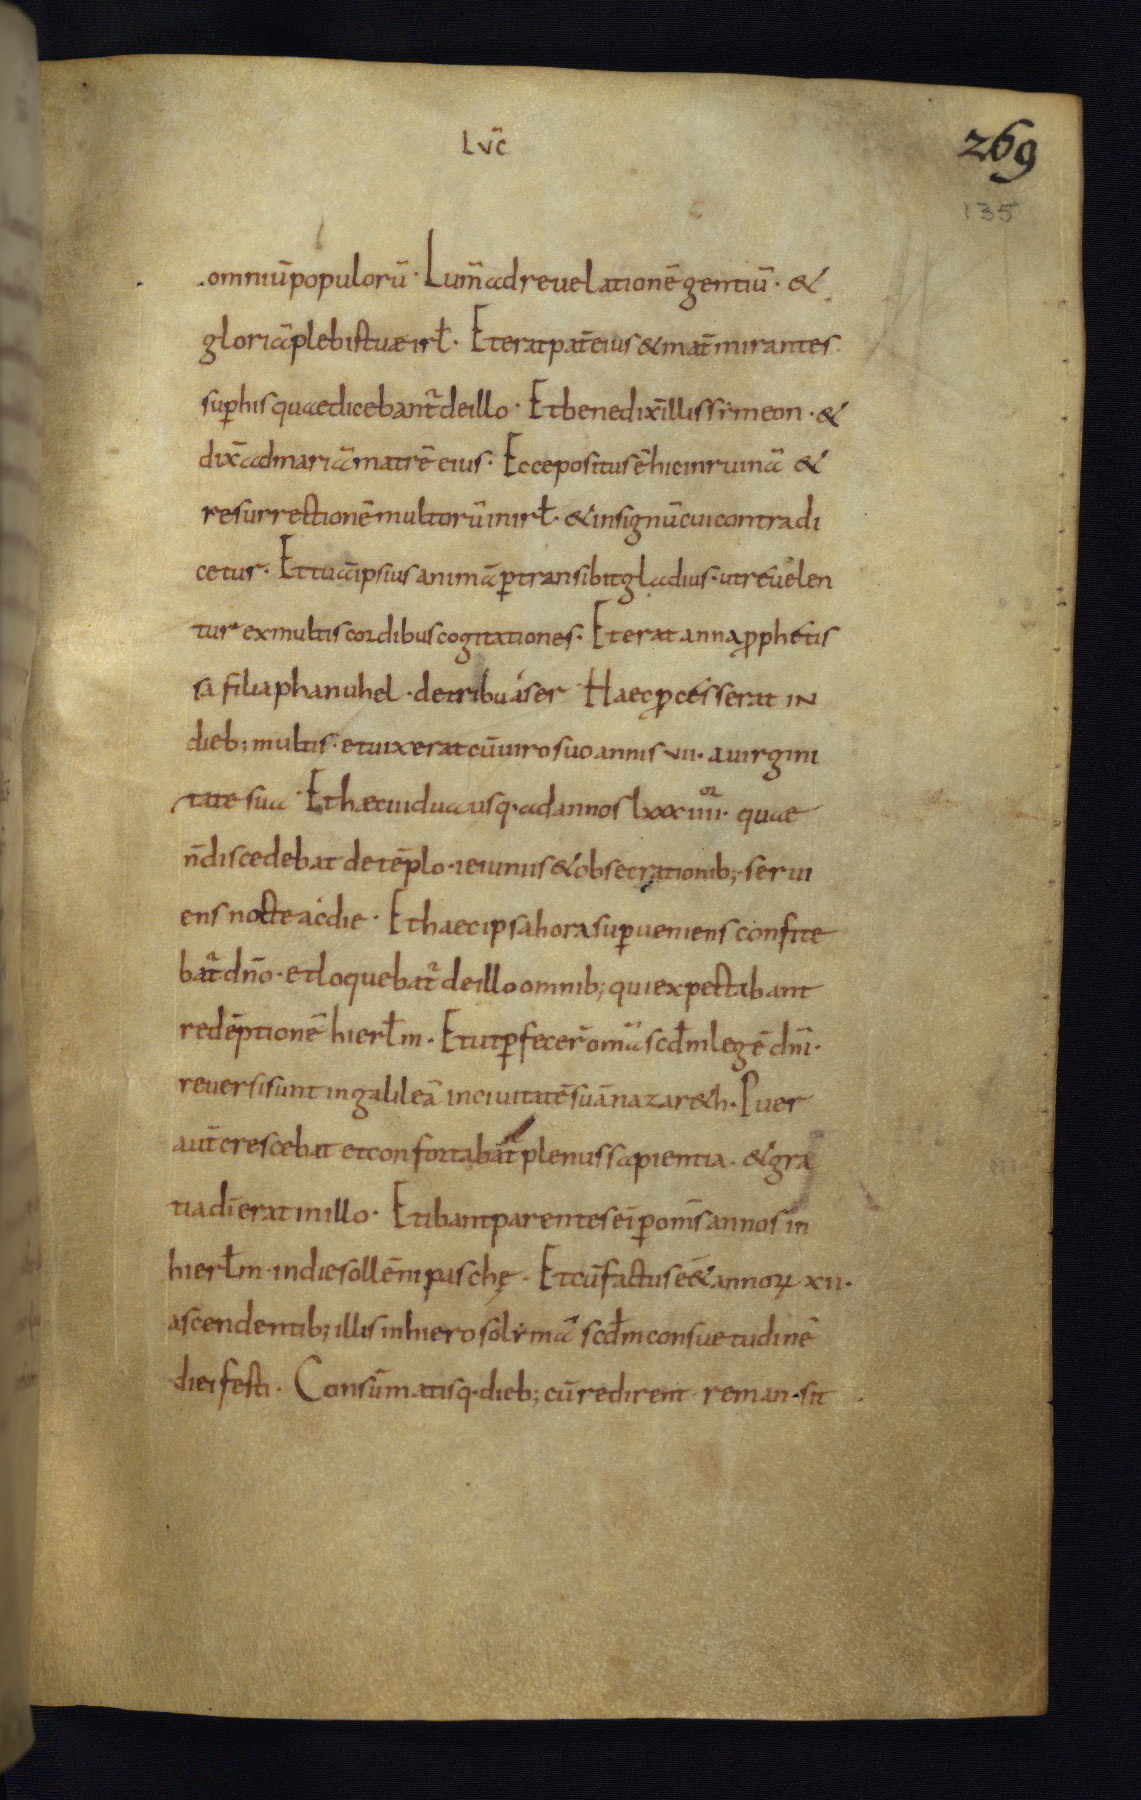 LVC̄
269
135
omniū populorū · Lum̄ ad revelationē gentiū · &
gloriā plebis tuae irł · Et erat pat̄ eius & mat̄ mirantes
sup̄ his quae dicebant᷑ de illo · Et benedix̄ illis symeon · &
dix̄ ad mariā matrē eius · Ecce positus ē hic in ruinā &
resurrectionē multorū in irł · & in signū cui contradi
cetur · Et tuā ipsius animā ꝑtransibit gladius · ut revelen
tur ex multis cordibus cogitationes · Et erat anna ꝓphetis
sa filia phanuhel · de tribu aser Haec ꝓcesserat in
dieb; multis · et vixerat cū viro suo annis vii · a virgini
tate sua · Et haec vidua usq· ad annos lxxxiiii or · quae
n̄ discedebat de tēplo · ieiuniis & obsecrationib; · servi
ens nocte ac die · Et haec ipsa hora suꝑveniens confite
bat᷑ dn̄o · et loquebat᷑ de illo omnib; qui expectabant
redēptionē hierłm · Et ut ꝑfecer̄ om̄a scd̄m legē dn̄i ·
reversi sunt in galileā in civitatē suā nazar&h · Puer
aut̄ crescebat et confortabat᷑ plenus sapientia · & gra
tia dī erat in illo · Et ibant parentes eī ꝑ om̄s annos in
hierłm · in die sollēni paschę · Et cū factus eē& annoꝝ xii ·
ascendentib; illis in hierosolymā scd̄m consuetudinē
diei festi · Consūmatisq· dieb; cū redirent · reman·sit